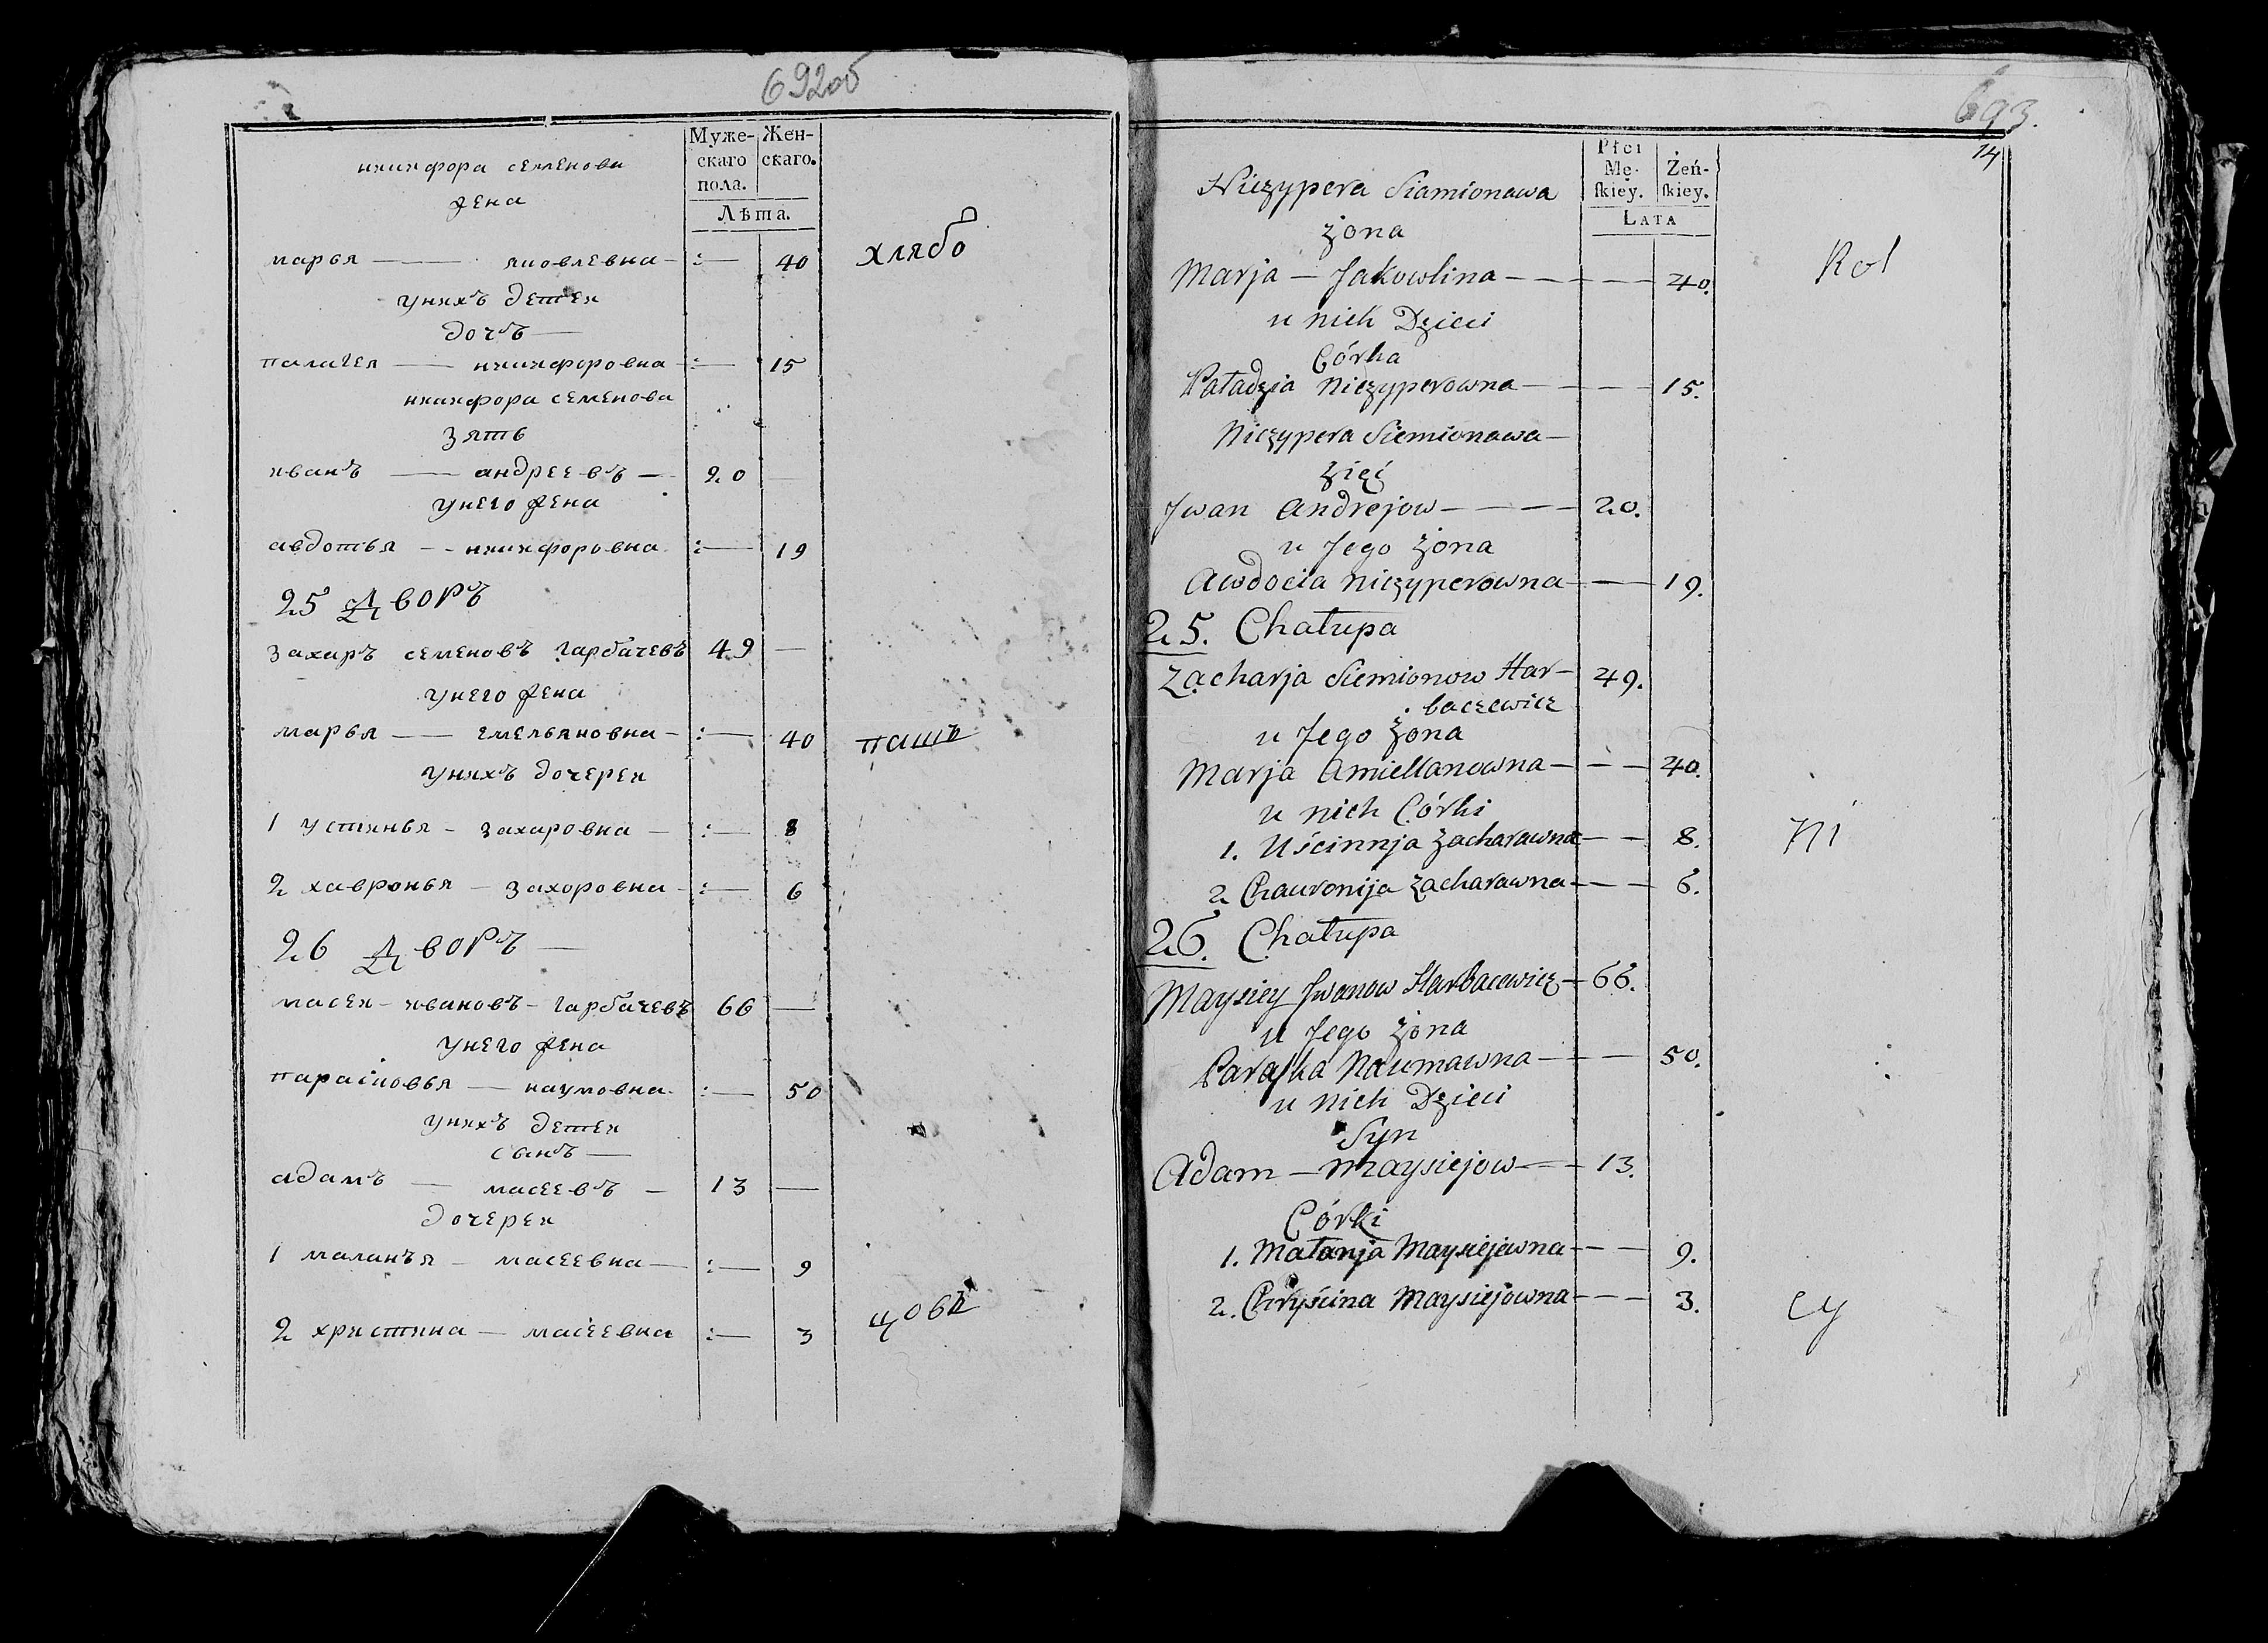 692об
Муже-
скаго
пола.
Жен-
скаго.
Лѣта.
никифора семенова
жена
марья — яковлевна — 40 хлябо
унихъ детеи
дочъ —
палагея — никифоровна — 15
никифора семенова
зять
иванъ — андреевъ — 20 —
унего жена
авдотья — никифоровна — 19
25 дворъ
захаръ семеновъ гарбачевъ 49 —
унего жена
марья — емельяновна — 40 пашъ
унихъ дочереи
1 устинья — захаровна — 8
2 хавронья — захоровна — 6
26 дворъ —
масеи — ивановъ — гарбачевъ 66 —
унего жена
парасковья — наумовна — 50
унихъ детеи
сынъ —
адамъ — масеевъ — 13 —
дочереи
1 маланъя — масеевна — 9
2 христина — масеевна — 3 цовъ
693.
14
Płci
Mę-
skiey.
Żeń-
skiey.
LATA
Niczypera Siamionawa
żona
Marja — Jakowlina — 40. Rol
u nich Dzieci
Córka
Paładzia Niczyperowna — 15.
Niczypera Siemionawa —
zięć
Jwan Andrejow — 20.
u Jego żona
Awdocia Niczyperowna — 19.
25. Chałupa
Zacharja Siemionow Har- 49.
baczewicz
u Jego żona
Marja Amiellanowna — 40.
u nich Córki
1. Uścinnja Zacharawna — 8. ni
2. Chauronija Zacharawna — 6.
26. Chałupa
Maysiey Jwanow Harbacewicz — 66.
u Jego żona
Paraska Naumawna — 50.
u nich Dzieci
Syn
Adam — Maysiejow — 13.
Córki
1. Małanja Maysiejewna — 9.
2. Chryścina Maysiejowna — 3. cy